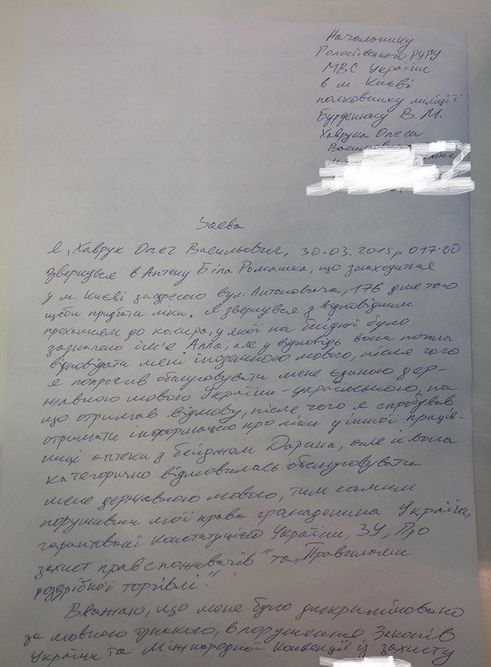 Начальнику
Голосіївського РУГУ
МВС України
в м. Києві
полковнику міліції
Бурденюку В. М.
Хаврука Олега
Васильовича
Заява
Я, Хаврук Олег Васильович, 30.03.2015р о 17:00
звернувся в Аптеку Біла Ромашка, що знаходиться
у м. Києві за адресою вул. Антоновича, 176 для того
щоби придбати ліки. Я звернувся з відповідним
проханням до касира, у якої на бейджі було
зазначено ім'я Алла, але у відповідь вона почала
відповідати мені іноземною мовою, після чого
я попросив обслуговувати мене єдиною дер-
жавною мовою України - українською, на
що отримав відмову, після чого я спробував
отримати інформацію про ліки у іншої праців-
ниці аптеки з бейджом Дарина, але й вона
категорично відмовилась обслуговувати
мене державною мовою, тим самим
порушивши мої права громадянина України,
гарантовані Конституцією України, ЗУ „Про
захист прав споживачів" та „Правилами
роздрібної торгівлі".
Вважаю, що мене було дискриміновано
за мовною ознакою, в порушення Законів
України та Міжнародної Конвенції із захисту